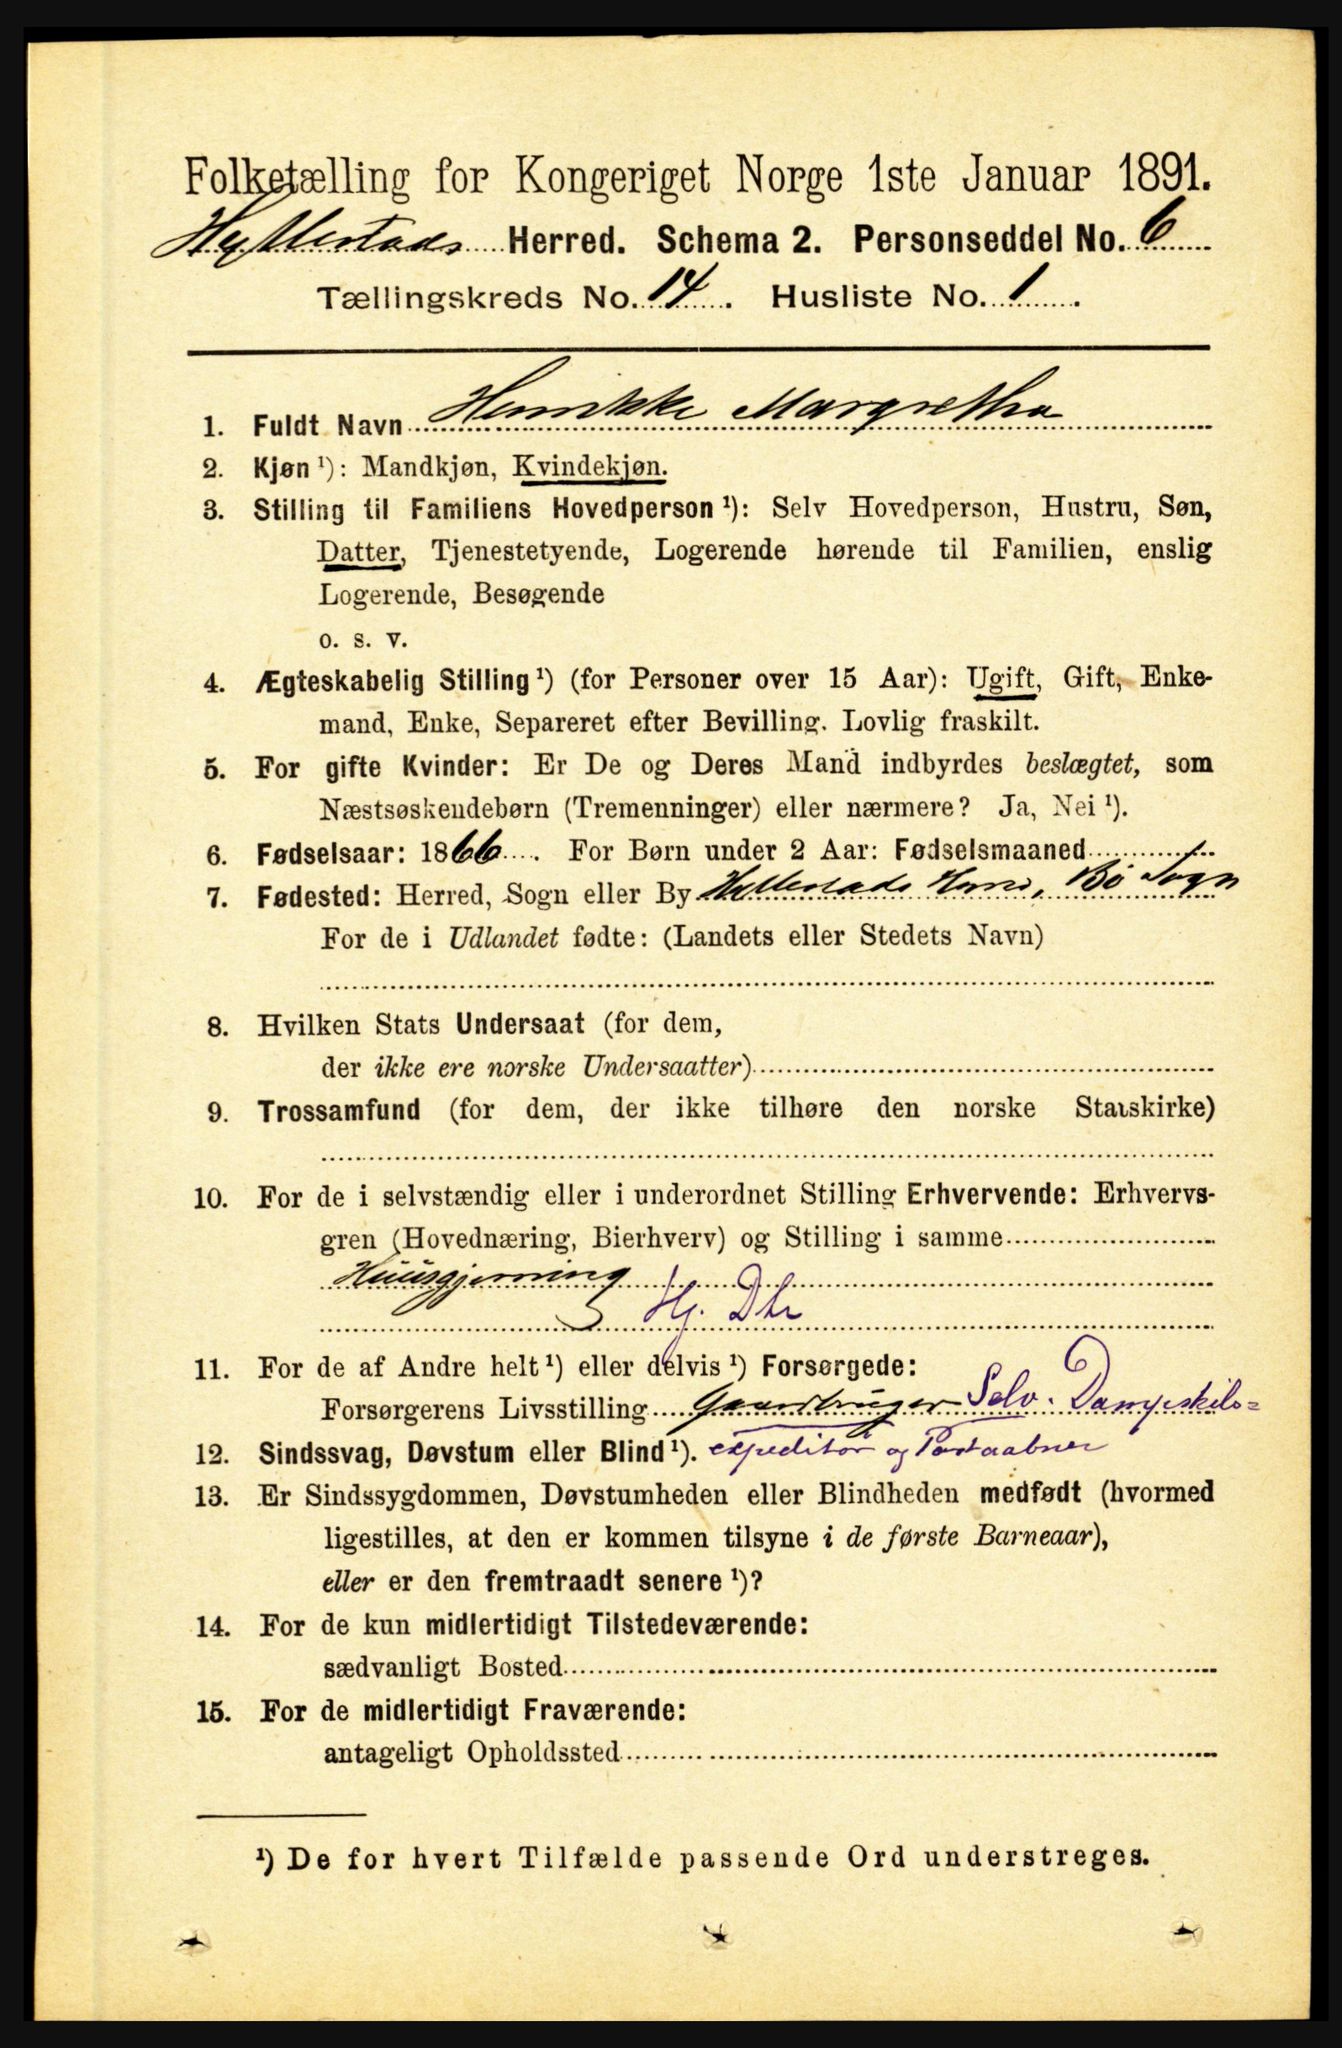 Folketælling for Kongeriget Norge 1ste Januar 1891.
Hyllestads Herred. Schema 2. Personseddel No. 6
Tællingskreds No. 14. Husliste No. 1.
1. Fuldt Navn Henrikke Margretha
2. Kjøn ¹): Mandkjøn, Kvindekjøn.
3. Stilling til Familiens Hovedperson ¹): Selv Hovedperson, Hustru, Søn,
Datter, Tjenestetyende, Logerende hørende til Familien, enslig
Logerende, Besøgende
o. s. v.
4. Ægteskabelig Stilling ¹) (for Personer over 15 Aar): Ugift, Gift, Enke-
mand, Enke, Separeret efter Bevilling. Lovlig fraskilt.
5. For gifte Kvinder: Er De og Deres Mand indbyrdes beslægtet, som
Næstsøskendebørn (Tremenninger) eller nærmere? Ja, Nei ¹).
6. Fødselsaar: 1866. For Børn under 2 Aar: Fødselsmaaned
7. Fødested: Herred, Sogn eller By Hyllestads Herred, Bø Sogn
For de i Udlandet fødte: (Landets eller Stedets Navn)
8. Hvilken Stats Undersaat (for dem,
der ikke ere norske Undersaatter)
9. Trossamfund (for dem, der ikke tilhøre den norske Statskirke)
10. For de i selvstændig eller i underordnet Stilling Erhvervende: Erhvervs-
gren (Hovednæring, Bierhverv) og Stilling i samme
Huusgjerning
Hj. Dtr
11. For de af Andre helt ¹) eller delvis ¹) Forsørgede:
Forsørgerens Livsstilling Gaardbruger Selv. Dampskibs=
12. Sindssvag, Døvstum eller Blind ¹). expeditør og Postaabner
13. Er Sindssygdommen, Døvstumheden eller Blindheden medfødt (hvormed
ligestilles, at den er kommen tilsyne i de første Barneaar),
eller er den fremtraadt senere ¹)?
14. For de kun midlertidigt Tilstedeværende:
sædvanligt Bosted
15. For de midlertidigt Fraværende:
antageligt Opholdssted
¹) De for hvert Tilfælde passende Ord understreges.